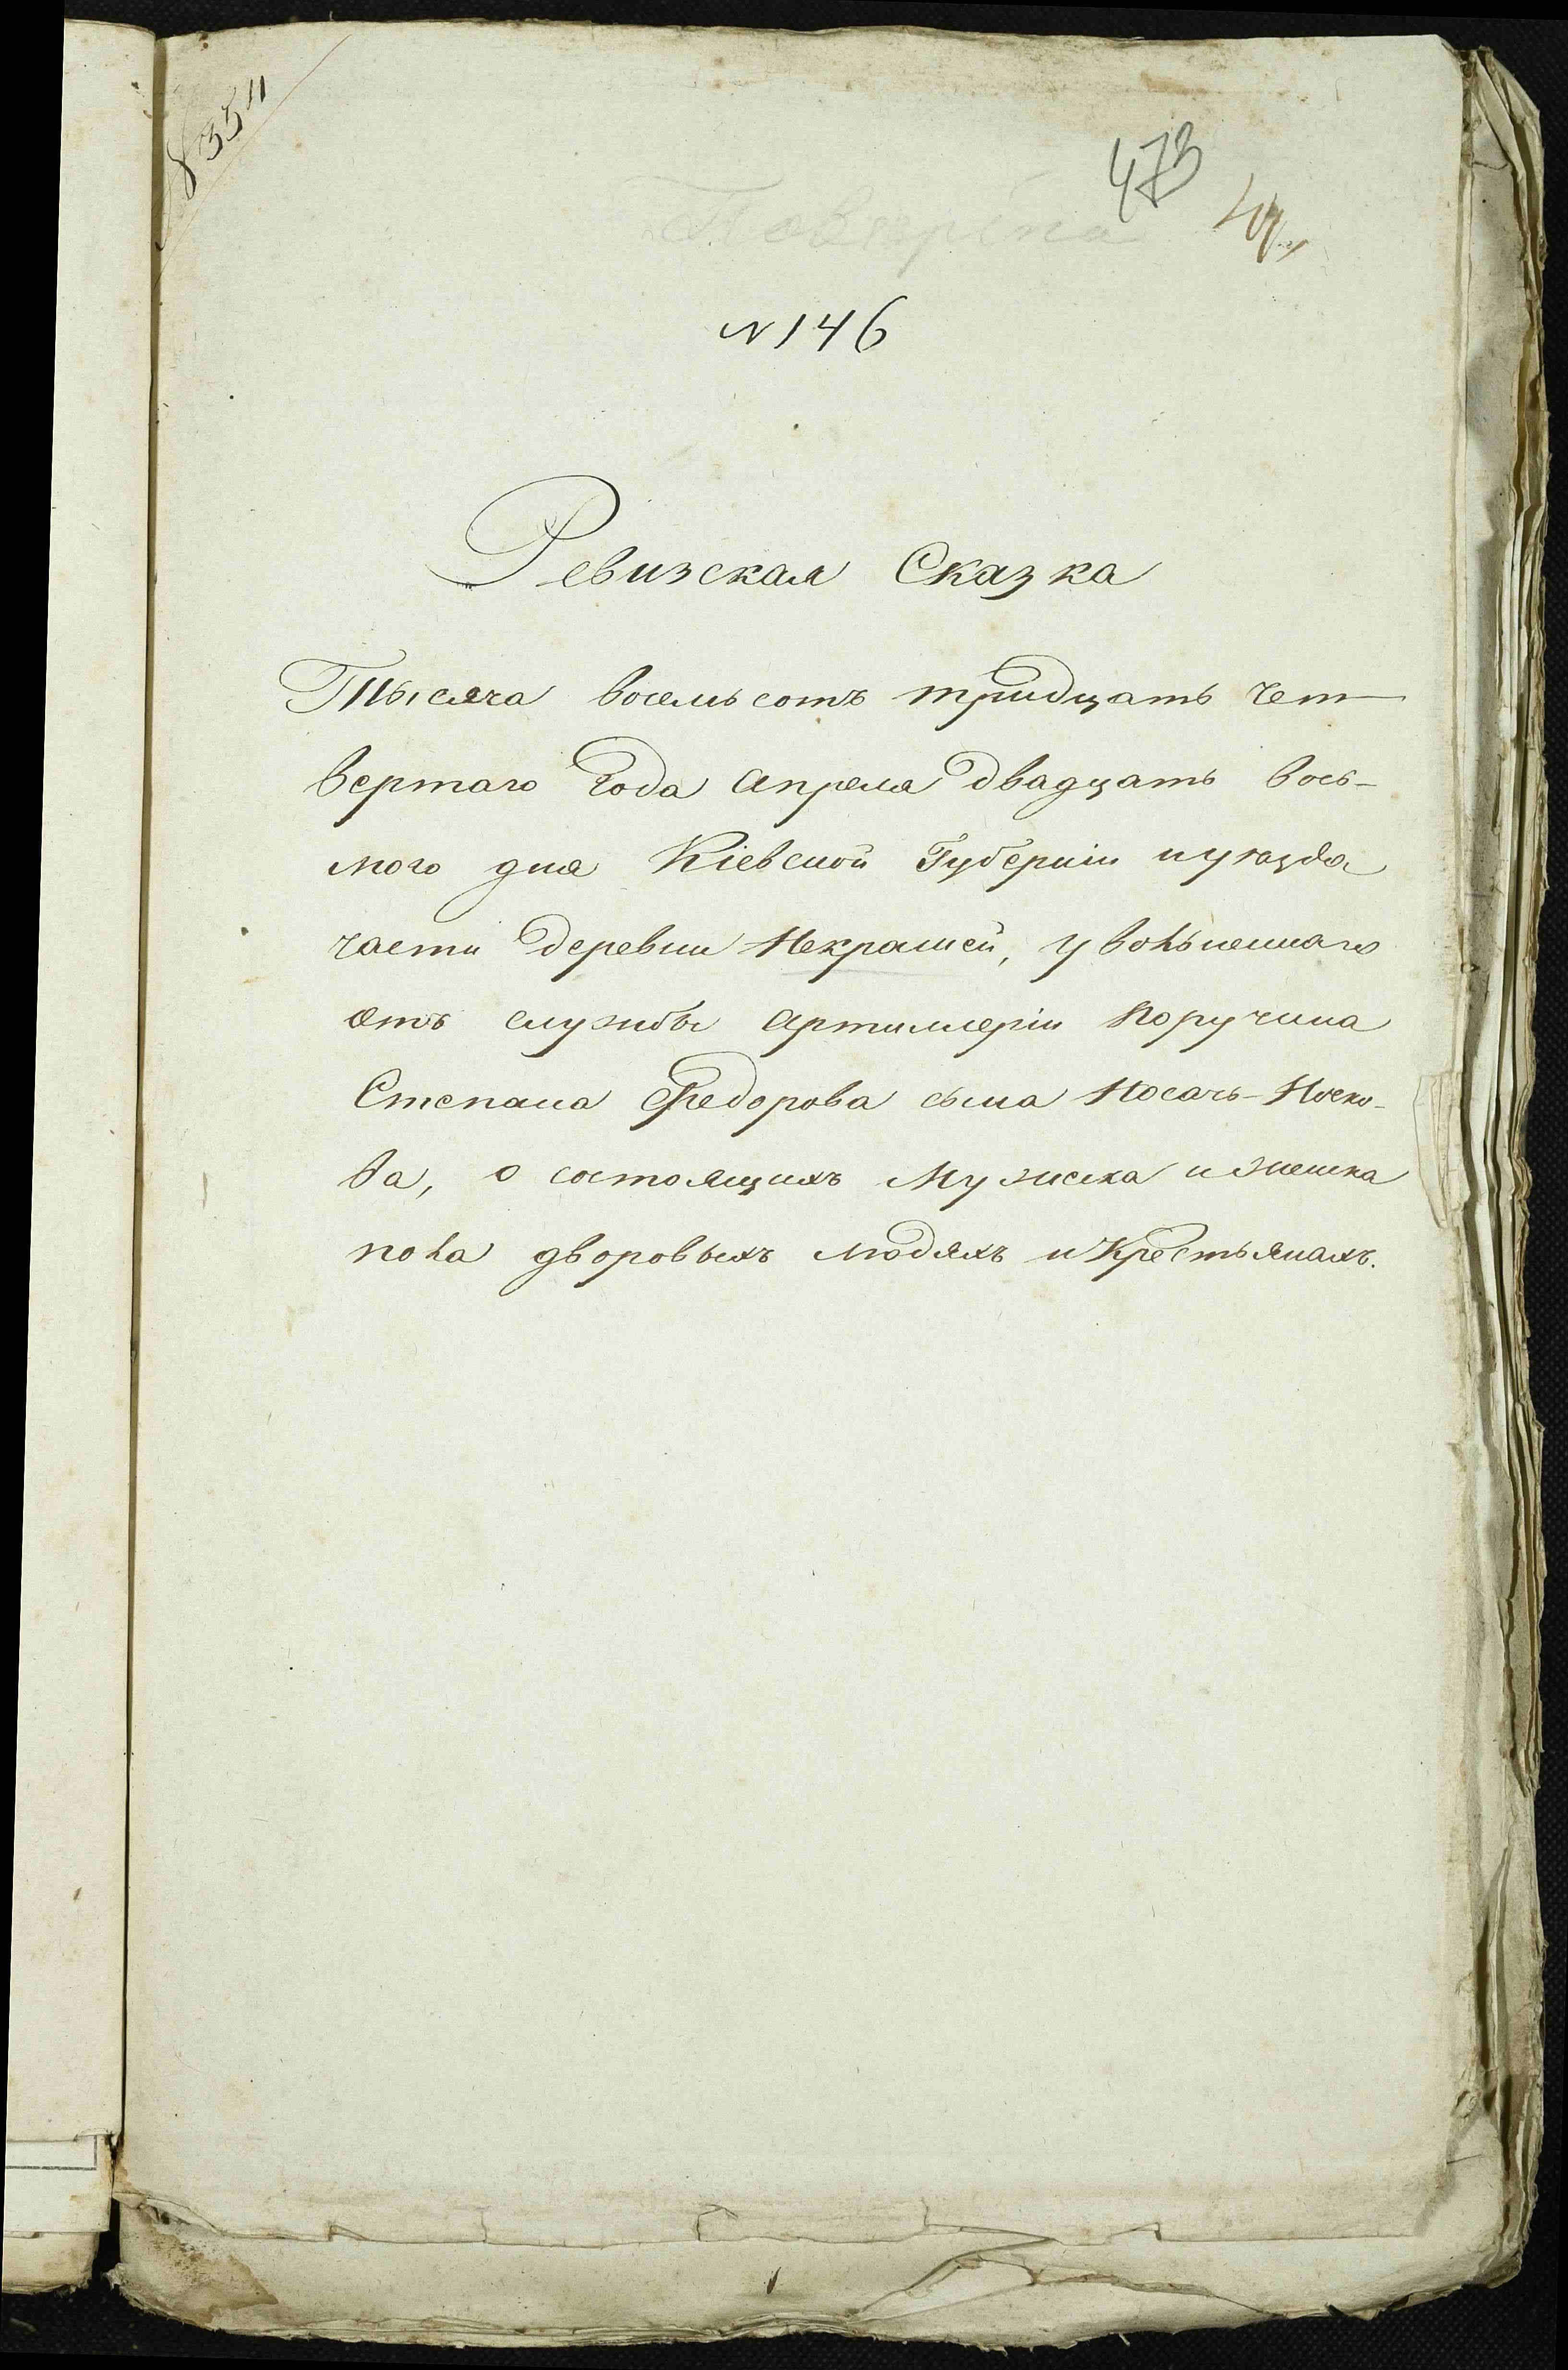 473
Поверена
N 146
Ревизская Сказка
Тысяча восемьсотъ тридцать чет
вертаго года Апреля двадцать вось-
мого дня Кіевской Губерніи и уезда
части деревни Некрашей, увольненнаго
отъ службы Артиллеріи Поручика
Степана Федорова сына Носачь-Носко-
ва, о состоящихъ Мужеска и женска
пола дворовыхъ людяхъ и Крестьянахъ.